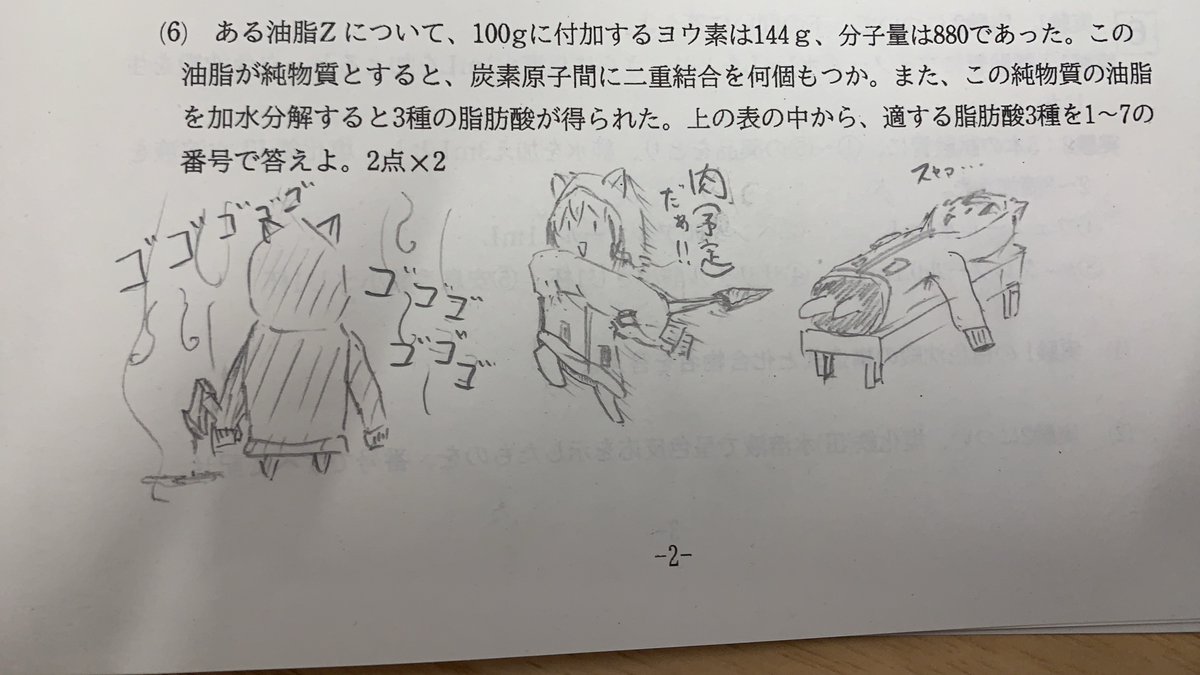 (6) ある油脂Zについて、100gに付加するヨウ素は144g、分子量は880であった。この
油脂が純物質とすると、炭素原子間に二重結合を何個もつか。また、この純物質の油脂
を加水分解すると3種の脂肪酸が得られた。上の表の中から、適する脂肪酸3種を1〜7の
番号で答えよ。2点×2
ゴゴゴゴゴ
ゴゴゴ
ゴゴゴ
肉(予定)
だぁ!!
スヤァ…
-2-